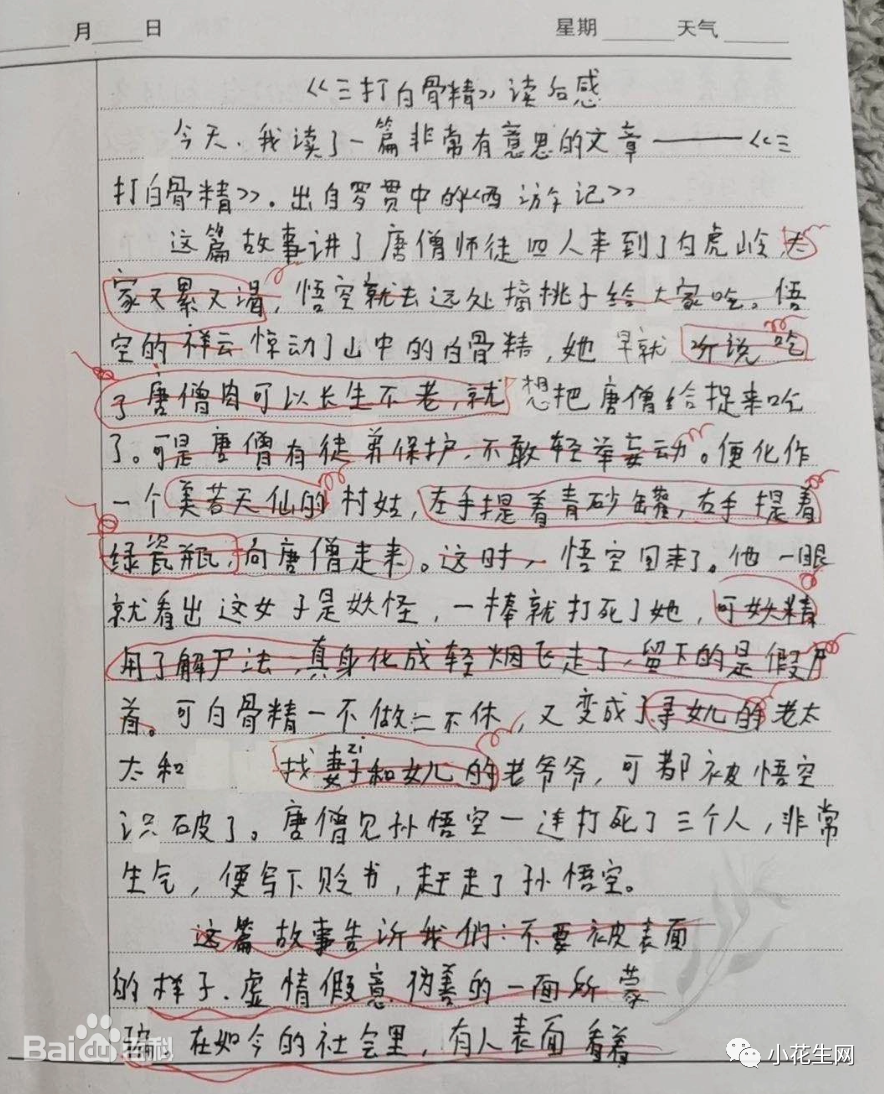 月 日 星期 天气
《三打白骨精》读后感
今天,我读了一篇非常有意思的文章———《三
打白骨精》.出自罗贯中的《西游记》
这篇故事讲了唐僧师徒四人来到了白虎岭,大
家又累又渴,悟空就去远处摘桃子给大家吃。悟
空的祥云惊动了山中的白骨精,她早就听说吃
了唐僧肉可以长生不老,就想把唐僧给捉来吃
了。可是唐僧有徒弟保护,不敢轻举妄动。便化作
一个美若天仙的村姑,左手提着青砂罐,右手提着
绿瓷瓶,向唐僧走来。这时,悟空回来了。他一眼
就看出这女子是妖怪,一棒就打死了她,可妖精
用了解尸法,真身化成轻烟飞走了,留下的是假尸
首。可白骨精一不做二不休,又变成了寻女儿的老太
zi
太和 找妻子和女儿的老爷爷,可都被悟空
识破了。唐僧见孙悟空一连打死了三个人,非常
生气,便写下贬书,赶走了孙悟空。
这篇故事告诉我们:不要被表面
的样子、虚情假意伪善的一面所蒙
骗。在如今的社会里,有人表面看着
Baidu百科
小花生网